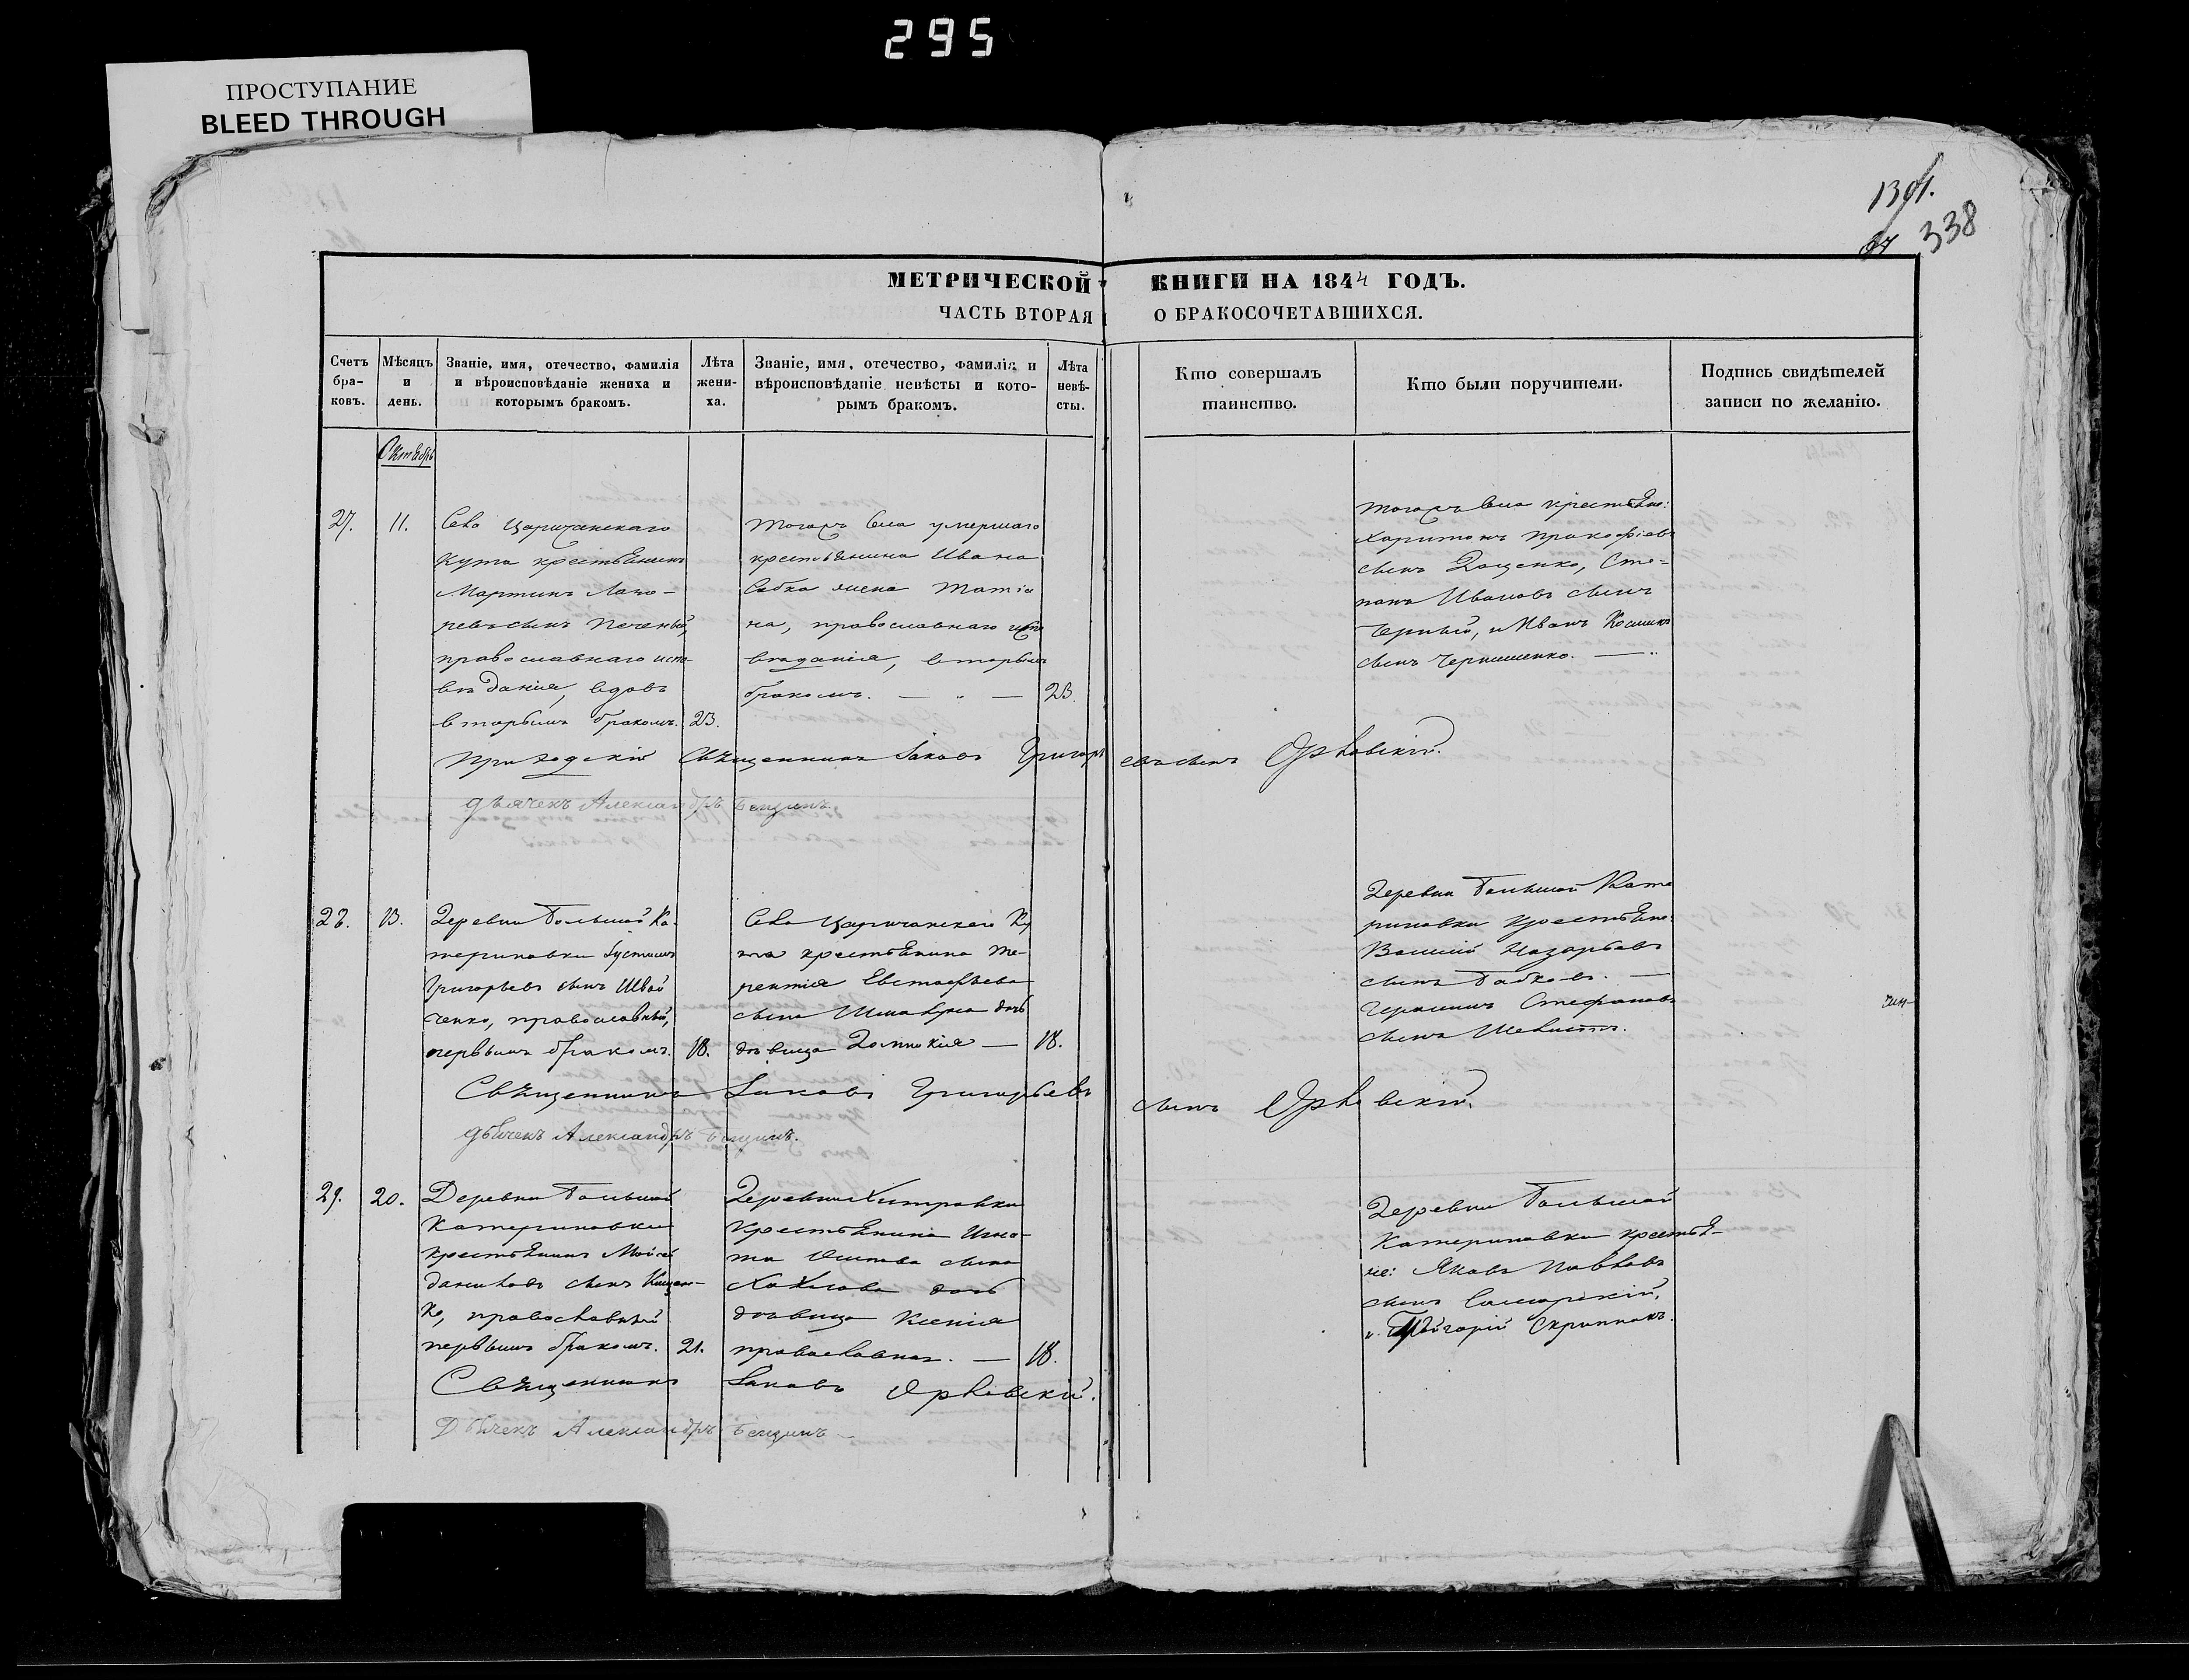 295
ПРОСТУПАНИЕ
BLEED THROUGH
1301.
338
МЕТРИЧЕСКОЙ КНИГИ НА 1844 ГОДЪ.
ЧАСТЬ ВТОРАЯ О БРАКОСОЧЕТАВШИХСЯ.
Счетъ бра-ковъ.
Мѣсяцъ и день.
Званіе, имя, отечество, фамилія и вѣроисповѣданіе жениха и которымъ бракомъ.
Лѣта жени-ха.
Званіе, имя, отечество, фамилія и вѣроисповѣданіе невѣсты и кото-рымъ бракомъ.
Лѣта невѣ-сты.
Кто совершалъ таинство.
Кто были поручители.
Подпись свидѣтелей записи по желанію.
Октябрь
27.
11.
Села Царичанскаго
Кута крестьянинъ
Мартинъ Лаза-
ревъ сынъ Печеный,
православнаго испо-
вѣданія, вдовъ
вторымъ бракомъ.
23.
Тогожъ села умершаго
крестьянина Ивана
жена Татія
на, православнаго испо
вѣданія, вторымъ
бракомъ. — „ —
23.
Тогожъ села крестьяне:
Харитонъ Прокофіевъ
сынъ Доценко, Сте=
панъ Ивановъ сынъ
Черный, и Иванъ Косминъ
сынъ Чернышенко. — „
Приходскій Священникъ Іаковъ Григорь евъ сынъ Орловскій.
Дьячекъ Александръ Бенцинъ.
28.
13.
Деревни Большой Ка-
териновки Іустинъ
Григорьевъ сынъ Швай
ченко, православный,
первымъ бракомъ.
18.
Села Царичанскаго Ку
та крестьянина Те-
рентія Евстафьева
сына дочь
дѣвица Домникія —
18.
Деревни Большой Кате
риновки крестьяне:
Василій Назарьевъ
сынъ Бабковъ. —
Герасимъ Стефановъ
сынъ
Священникъ Іаковъ Григорьевъ сынъ Орловскій.
Дьячекъ Александръ Бенцинъ.
29.
20.
Деревни Большой
Катериновки
крестьянинъ Мойсей
Даниловъ сынъ Кищен-
ко, православный
первымъ бракомъ.
21.
Деревни Хитровки
Крестьянина Игна-
та Осипова сына
Хохлова дочь
дѣвица Ксенія
православная. —
18.
Деревни Большой
Катериновки крестья-
не: Яковъ Павловъ
сынъ Самарскій,
и Григорій Скрипникъ.
Священникъ Іаковъ Орловскій.
Дьячекъ Александръ Бенцинъ